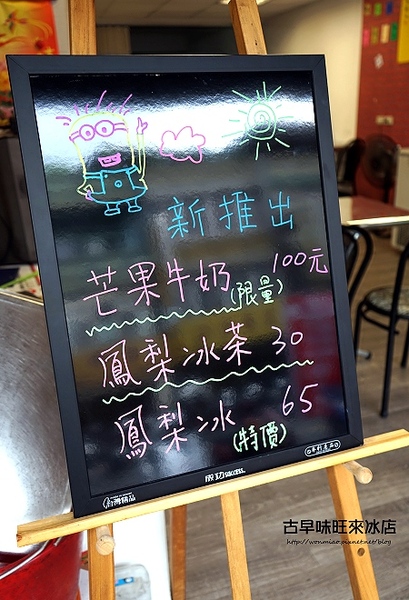 新推出
芒果牛奶 100元
(限量)
鳳梨冰茶 30
鳳梨冰 65
(特價)
成功 SUCCESS
台灣精品
古早味旺來冰店
http://wonmiao.pixnet.net/blog